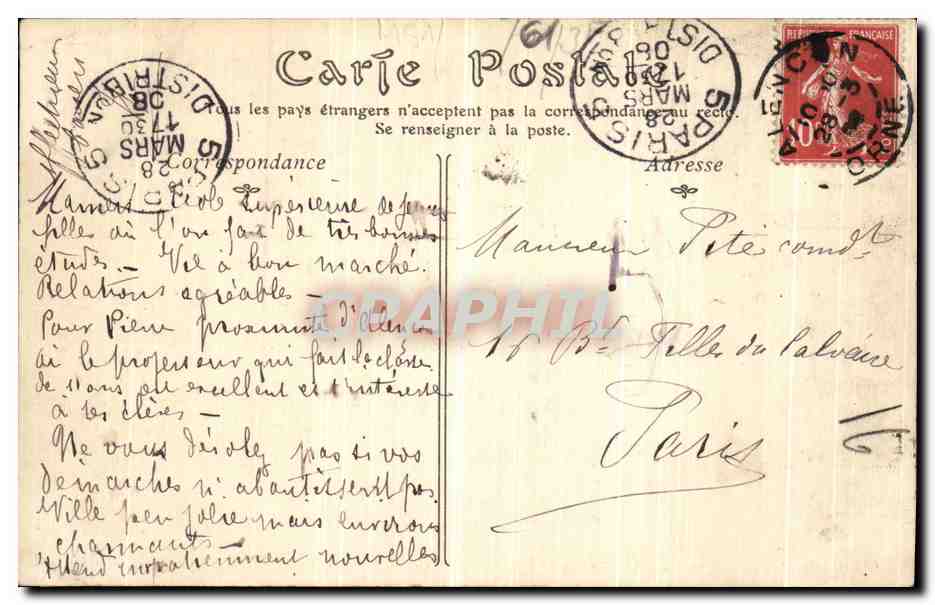 Carte Postale
Tous les pays étrangers n'acceptent pas la correspondance au recto.
Se renseigner à la poste.
Correspondance
Adresse
Mamers Ecole Supérieure de jeunes
filles où l'on fait de très bonnes
études. _ Vie à bon marché.
Relations agréables _
Pour Pierre proximité d'Alençon
où le professeur qui fait la classe
de 11 ans est excellent et s'intéresse
à ses élèves _
Ne vous désolez pas si vos
démarches n'aboutissent pas
Ville peu jolie mais environs
charmants _
Attend impatiemment nouvelles
Monsieur Pité comdt
Bd Filles du Calvaire
Paris
RÉPUBLIQUE FRANÇAISE
10
ALENÇON
28 -3
ORNE
PARIS
5 DISTRIB
28
MARS
DISTRIB
5
28
MARS
1730
08
GRAPHIL